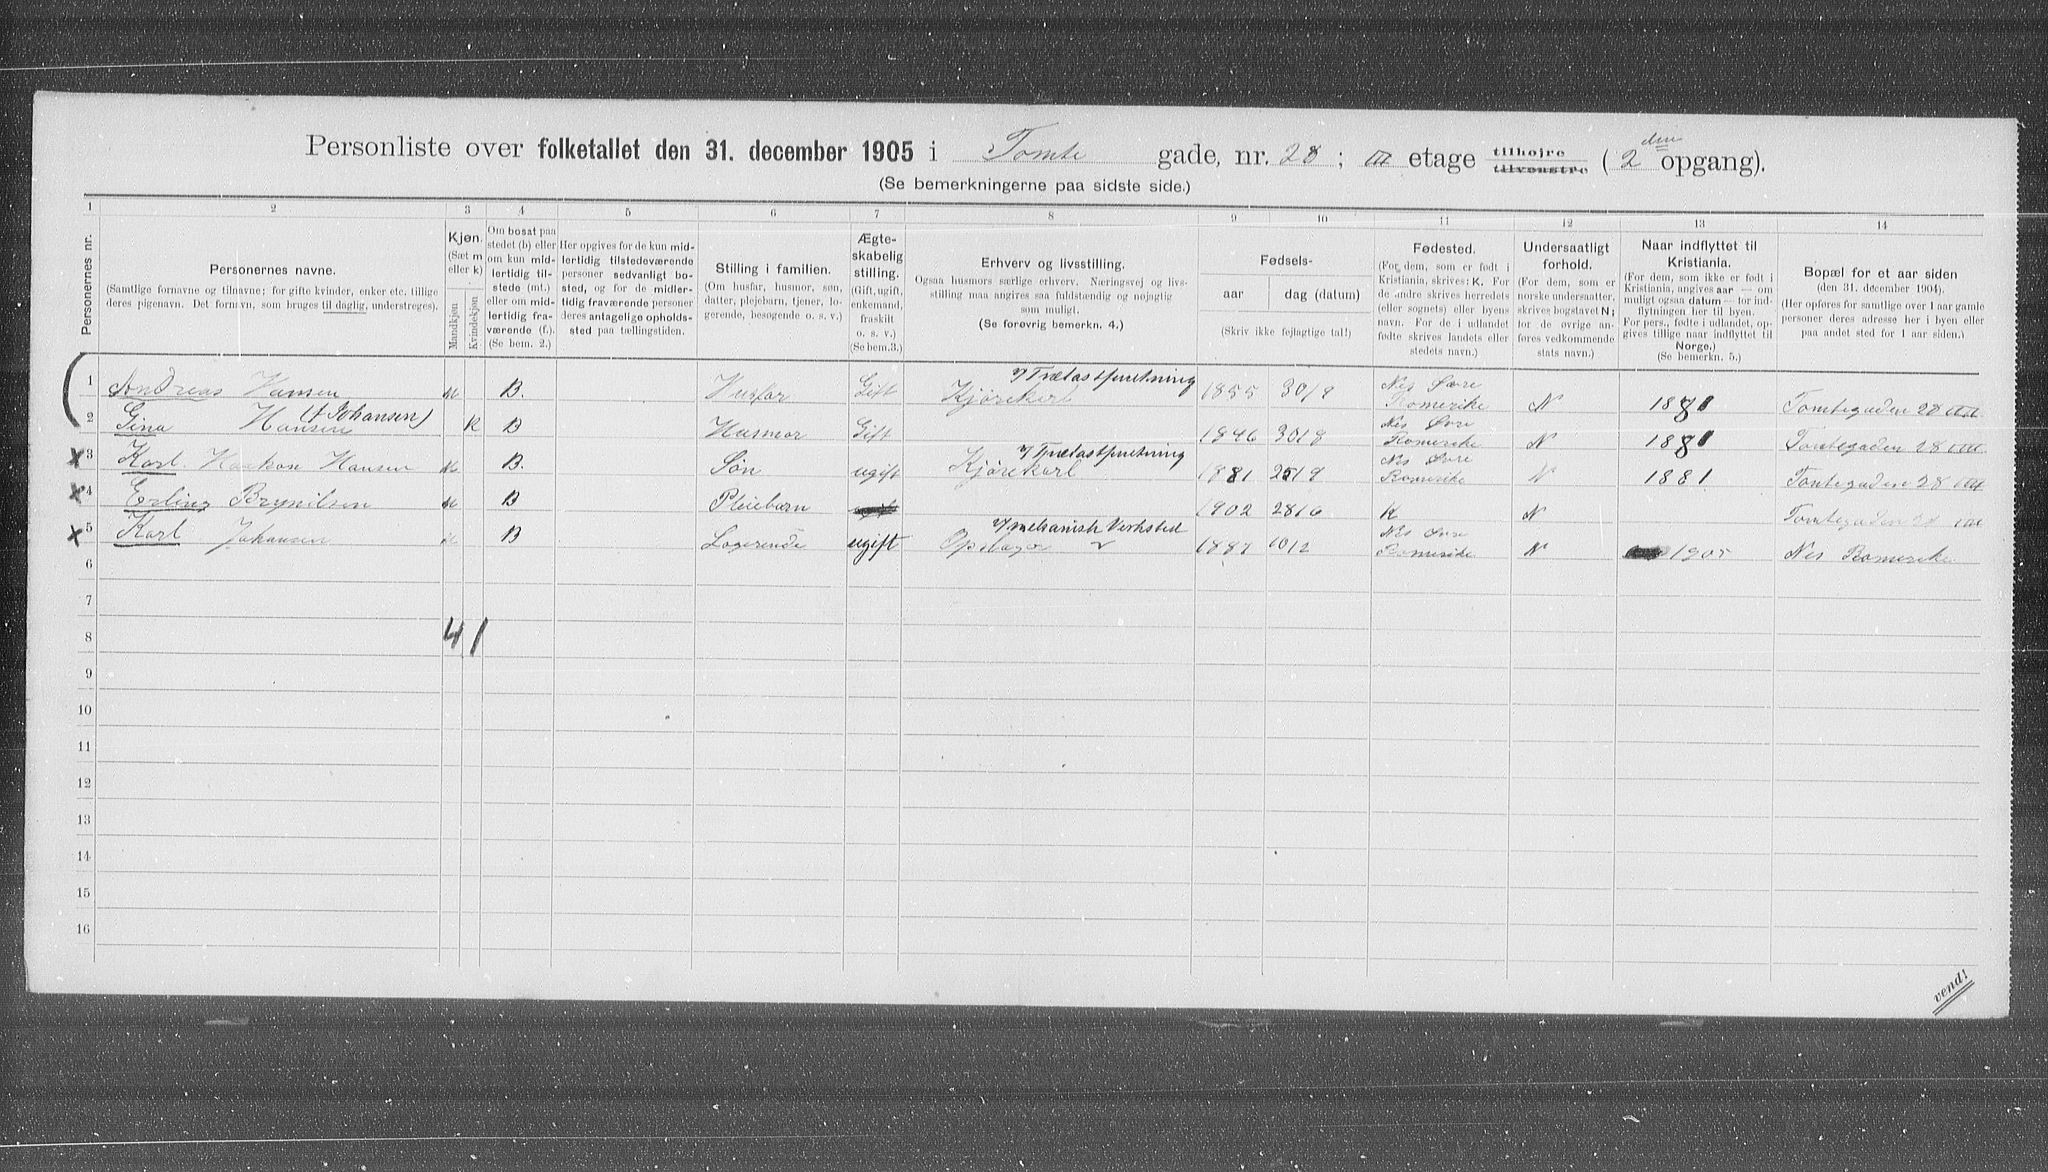 Personliste over folketallet den 31. december 1905 i Tomte gade, nr. 28 ; III etage tilhøjre tilvenstre ( 2 den opgang).
(Se bemerkningerne paa sidste side.)
1 2 3 4 5 6 7 8 9 10 11 12 13 14
Personernes nr.
Personernes navne.
(Samtlige fornavne og tilnavne; for gifte kvinder, enker etc. tillige
deres pigenavn. Det fornavn, som bruges til daglig, understreges).
Kjøn.
(Sæt m
eller k)
Mandkjøn
Kvindekjøn
Om bosat paa
stedet (b) eller
om kun mid-
lertidig til-
stede (mt.)
eller om mid-
lertidig fra-
værende (f.).
(Se bem. 2.)
Her opgives for de kun mid-
lertidig tilstedeværende
personer sedvanligt bo-
sted, og for de midler-
tidig fraværende personer
deres antagelige opholds-
sted paa tællingstiden.
Stilling i familien.
(Om husfar, husmor, søn,
datter, plejebarn, tjener, lo-
gerende, besøgende o. s. v.)
Ægte-
skabelig
stilling.
(Gift, ugift,
enkemand,
fraskilt
o. s. v.)
(Se bem.3.)
Erhverv og livsstilling.
Ogsaa husmors særlige erhverv. Næringsvej og livs-
stilling maa angives saa fuldstændig og nøjagtig
som muligt.
(Se forøvrig bemerkn. 4.)
Fødsels-
aar
dag (datum)
(Skriv ikke fejlagtige tal!)
Fødested.
(For dem, som er født i
Kristiania, skrives: K. For
de andre skrives herredets
(eller sognets) eller byens
navn. For de i udlandet
fødte skrives landets eller
stedets navn.)
Undersaatligt
forhold.
(For dem, som er
norske undersaatter,
skrives bogstavet N;
for de øvrige an-
føres vedkommende
stats navn.)
Naar indflyttet til
Kristiania.
(For dem, som ikke er født i
Kristiania, angives aar — om
muligt ogsaa datum — for ind-
flytningen her til byen.
For pers., fødte i udlandet, op-
gives tillige naar indflyttet til
Norge.)
(Se bemerkn. 5.)
Bopæl for et aar siden
(den 31. december 1904).
(Her opføres for samtlige over 1 aar gamle
personer deres adresse her i byen eller
paa andet sted for 1 aar siden.)
1 Andreas Hansen M B. Husfar Gift Kjørekarl v/ Trælastforretning 1855 30/9 Nes Øvre Romerike N 1881 Tomtegaden 28
2 Gina Hansen (f Johansen) K B Husmor Gift 1846 30/8 Nes Øvre Romerike N 1881 Tomtegaden 28
3 Karl Haakon Hansen M B. Søn ugift Kjørekarl v/ Trælastforretning 1881 25/9 Nes Øvre Romerike N 1881 Tomtegaden 28
4 Erling Brynilsen M B Pleiebarn 1902 28/6 K N Tomtegaden 28
5 Karl Johansen M B Logerende ugift v/ mekanisk Verksted 1887 10/2 Nes Øvre Romerike N 1905 Nes Romerike
6
7
8
4 1
9
10
11
12
13
14
15
16
vend!